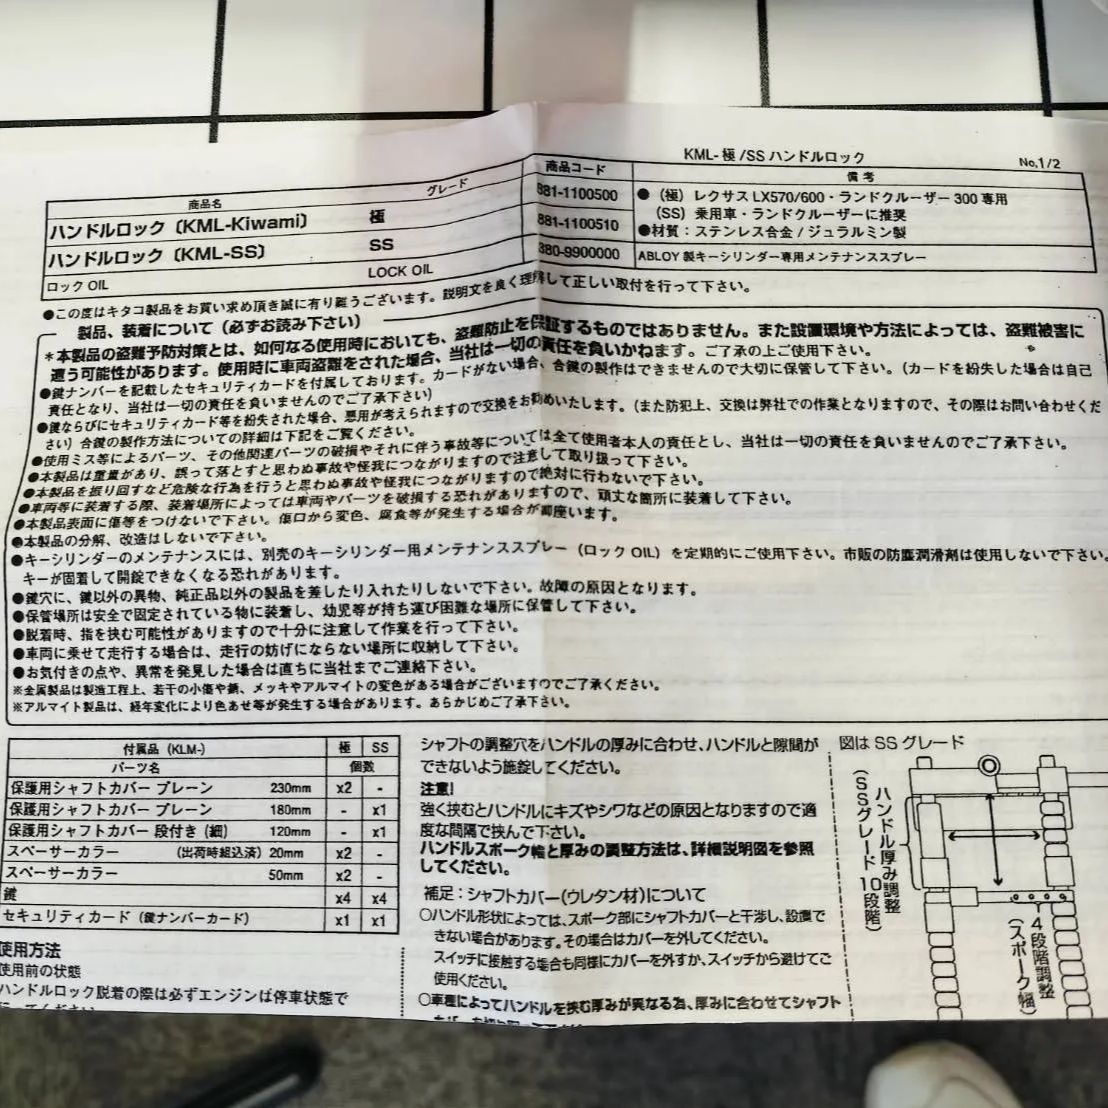 KML-極/SSハンドルロック
No,1/2
商品名 グレード 商品コード 備考
ハンドルロック〔KML-Kiwami〕 極 881-1100500 ●（極）レクサスLX570/600・ランドクルーザー300専用
（SS）乗用車・ランドクルーザーに推奨
ハンドルロック〔KML-SS〕 SS 881-1100510 ●材質：ステンレス合金/ジュラルミン製
ロックOIL LOCK OIL 880-9900000 ABLOY製キーシリンダー専用メンテナンススプレー
●この度はキタコ製品をお買い求め頂き誠に有り難うございます。説明文を良く理解して正しい取付を行って下さい。
製品、装着について（必ずお読み下さい）
＊本製品の盗難予防対策とは、如何なる使用時においても、盗難防止を保証するものではありません。また設置環境や方法によっては、盗難被害に
遭う可能性があります。使用時に車両盗難をされた場合、当社は一切の責任を負いかねます。ご了承の上ご使用下さい。
●鍵ナンバーを記載したセキュリティカードを付属しております。カードがない場合、合鍵の製作はできませんので大切に保管して下さい。（カードを紛失した場合は自己
責任となり、当社は一切の責任を負いませんのでご了承下さい）
●鍵ならびにセキュリティカード等を紛失された場合、悪用が考えられますので交換をお勧めいたします。（また防犯上、交換は弊社での作業となりますので、その際はお問い合わせくだ
さい）合鍵の製作方法についての詳細は下記をご覧ください。
●使用ミス等によるパーツ、その他関連パーツの破損やそれに伴う事故等については全て使用者本人の責任とし、当社は一切の責任を負いませんのでご了承下さい。
●本製品は重量があり、誤って落とすと思わぬ事故や怪我につながりますので注意して取り扱って下さい。
●本製品を振り回すなど危険な行為を行うと思わぬ事故や怪我につながりますので絶対に行わないで下さい。
●車両等に装着する際、装着場所によっては車両やパーツを破損する恐れがありますので、頑丈な箇所に装着して下さい。
●本製品表面に傷等をつけないで下さい。傷口から変色、腐食等が発生する場合が御座います。
●本製品の分解、改造はしないで下さい。
●キーシリンダーのメンテナンスには、別売のキーシリンダー用メンテナンススプレー（ロックOIL）を定期的にご使用下さい。市販の防塵潤滑剤は使用しないで下さい。
キーが固着して開錠できなくなる恐れがあります。
●鍵穴に、鍵以外の異物、純正品以外の製品を差したり入れたりしないで下さい。故障の原因となります。
●保管場所は安全で固定されている物に装着し、幼児等が持ち運び困難な場所に保管して下さい。
●脱着時、指を挟む可能性がありますので十分に注意して作業を行って下さい。
●車両に乗せて走行する場合は、走行の妨げにならない場所に収納して下さい。
●お気付きの点や、異常を発見した場合は直ちに当社までご連絡下さい。
※金属製品は製造工程上、若干の小傷や錆、メッキやアルマイトの変色がある場合がございますのでご了承ください。
※アルマイト製品は、経年変化により色あせ等が発生する場合があります。あらかじめご了承下さい。
付属品（KLM-） 極 SS
パーツ名 個数
保護用シャフトカバー プレーン 230mm x2 -
保護用シャフトカバー プレーン 180mm - x1
保護用シャフトカバー 段付き（細） 120mm - x1
スペーサーカラー （出荷時組込済）20mm x2 -
スペーサーカラー 50mm x2 -
鍵 x4 x4
セキュリティカード（鍵ナンバーカード） x1 x1
使用方法
使用前の状態
ハンドルロック脱着の際は必ずエンジンは停車状態で
シャフトの調整穴をハンドルの厚みに合わせ、ハンドルと隙間が
できないよう施錠してください。
注意!
強く挟むとハンドルにキズやシワなどの原因となりますので適
度な間隔で挟んで下さい。
ハンドルスポーク幅と厚みの調整方法は、詳細説明図を参照
してください。
補足：シャフトカバー(ウレタン材)について
○ハンドル形状によっては、スポーク部にシャフトカバーと干渉し、設置で
きない場合があります。その場合はカバーを外してください。
スイッチに接触する場合も同様にカバーを外すか、スイッチから避けてご
使用ください。
○車種によってハンドルを挟む厚みが異なる為、厚みに合わせてシャフト
図はSSグレード
ハンドル厚み調整
（SSグレード10段階）
4段階調整
（スポーク幅）